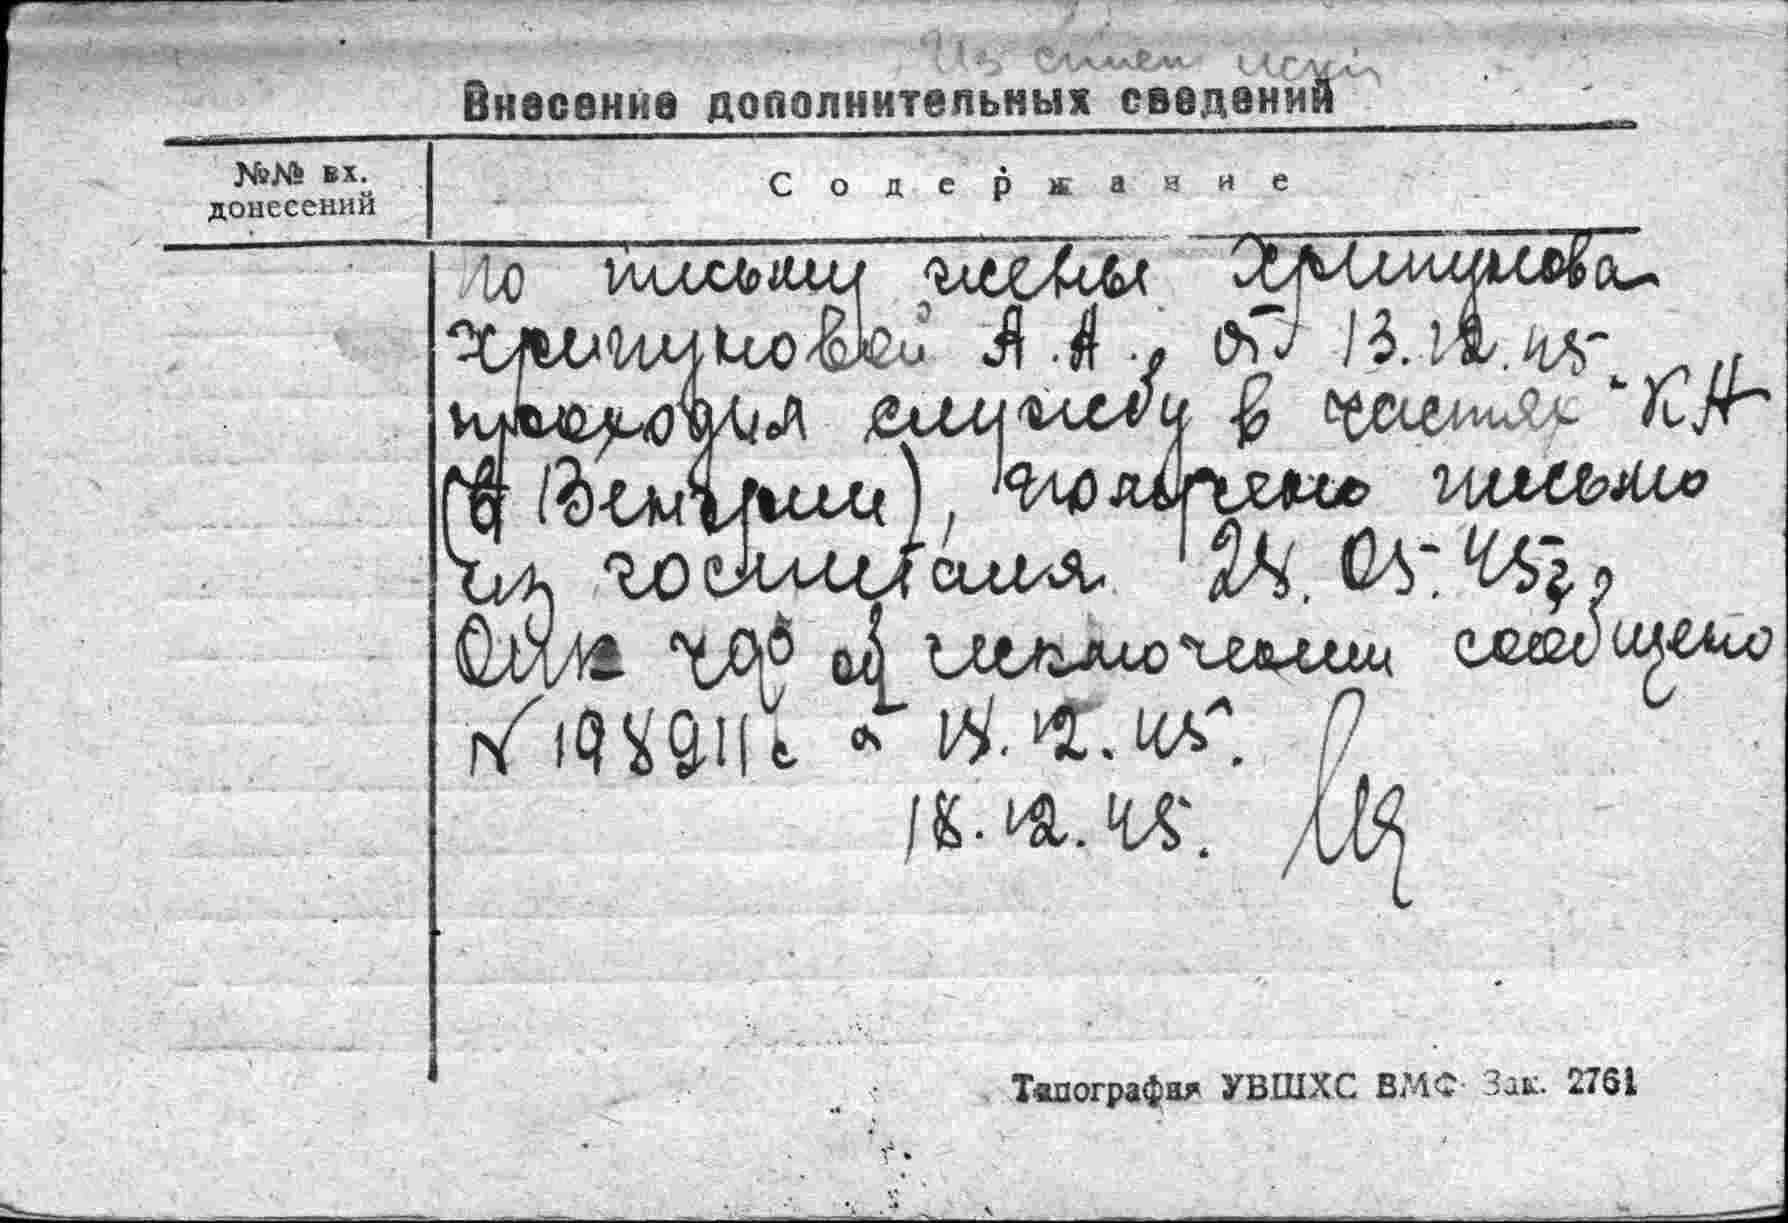 Из спис. искл.
Внесение дополнительных сведений
№№ вх.
донесений
Содержание
По письму жены Хрипунова
Хрипуновой А.А., от 13.12.45
проходил службу в частях КА
(в Венгрии), получено письмо
из госпиталя 28.05.45г.,
об исключении сообщено
N 198911с от 18.12.45.
18.12.45.
Типография УВШХС ВМФ Зак. 2761